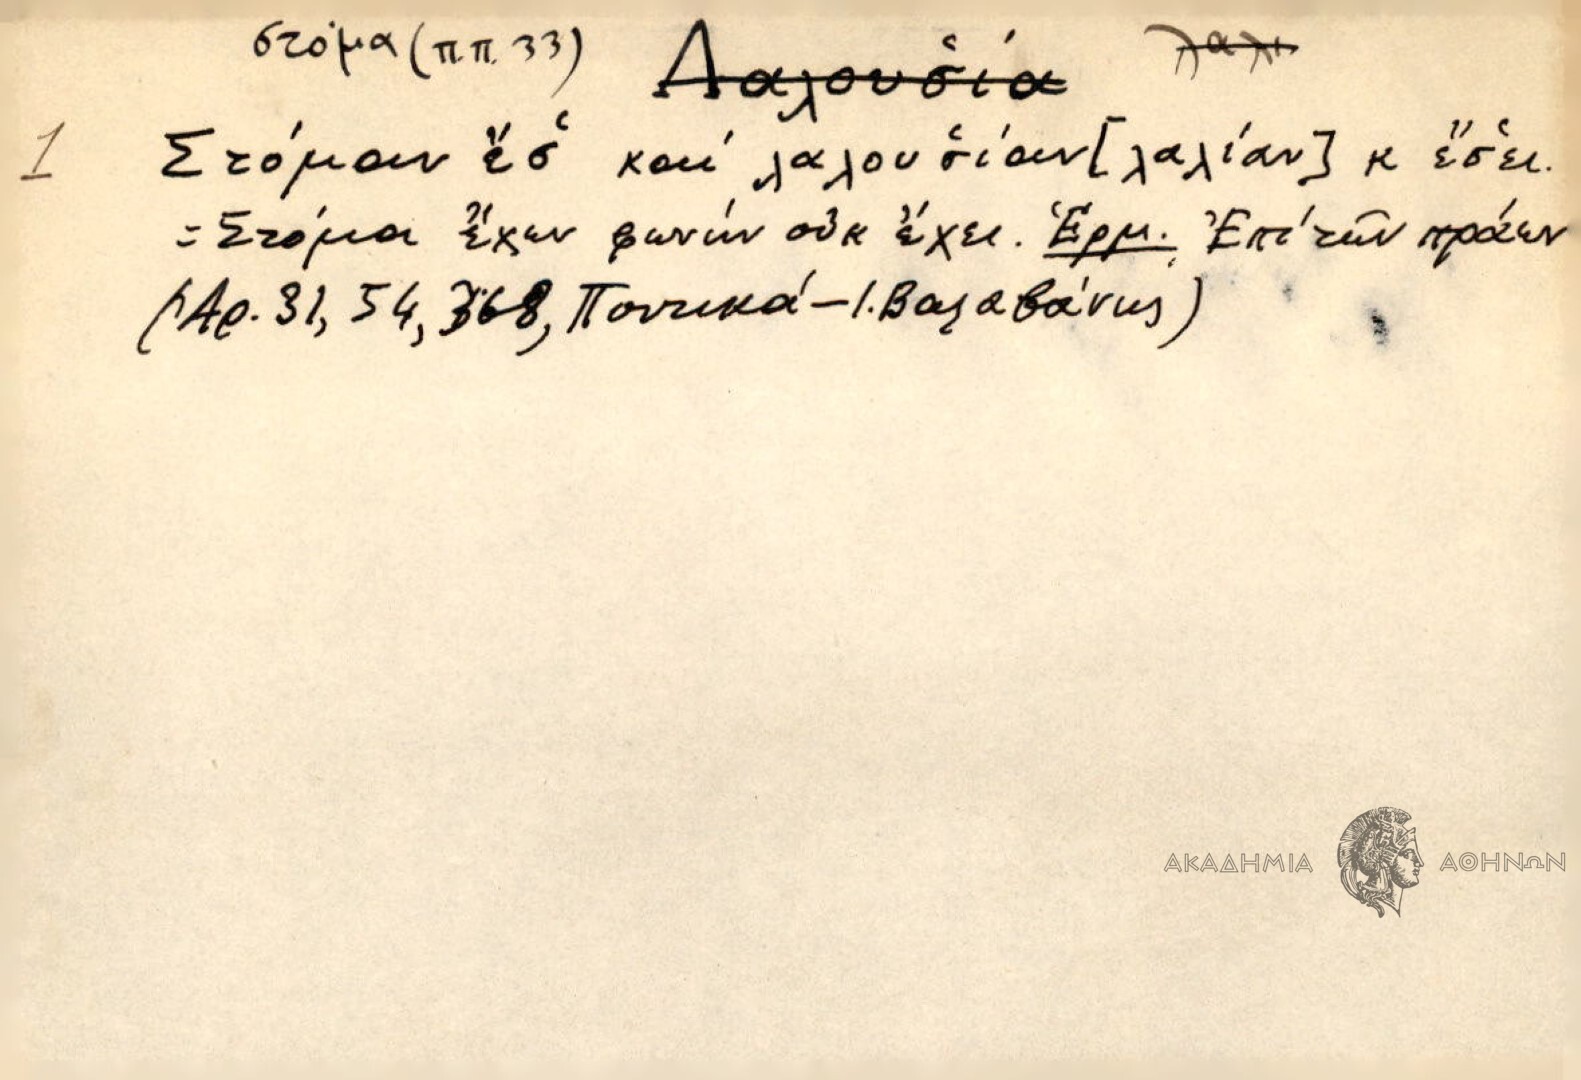 στόμα (π.π. 33) Λαλουσ̔ία λαλι
1 Στόμαν ἔσ̔ καί λαλουσ̔ίαν [λαλίαν] κ ἔσ̔ει.
= Στόμα ἔχων φωνήν οὐκ ἔχει. Ἑρμ. Ἐπί τῶν πράων
(Ἀρ. 31, 54, 368, Ποντικά – Ι. Βαλαβάνης)
ΑΚΑΔΗΜΙΑ ΑΘΗΝΩΝ